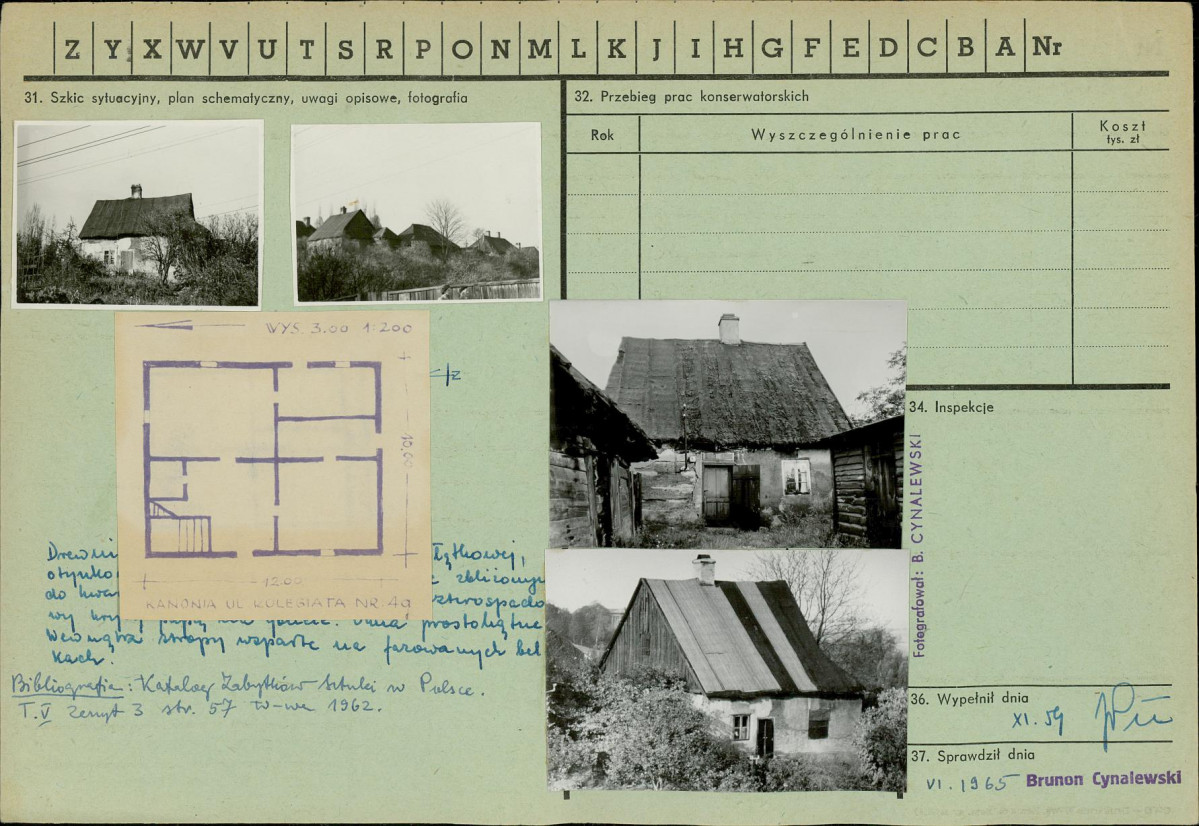 Z Y X W V U T S R P O N M L K J I H G F E D C B A Nr
31. Szkic sytuacyjny, plan schematyczny, uwagi opisowe, fotografia
32. Przebieg prac konserwatorskich
Rok
Wyszczególnienie prac
Koszt
tys. zł
WYS. 3.00 1:200
10.00
12.00
KANONIA UL KOLEGIATA NR. 4a
otynko
zbliżonym
do kwa
wy kryty papą
prostokątne
Wewnątrz stropy wsparte na fazowanych bel
kach.
Bibliografia: Katalog Zabytków Sztuki w Polsce.
T. V Zeszyt 3 str. 57 W-wa 1962.
34. Inspekcje
Fotografował: B. CYNALEWSKI
36. Wypełnił dnia
XI. 59
37. Sprawdził dnia
VI. 1965 Brunon Cynalewski